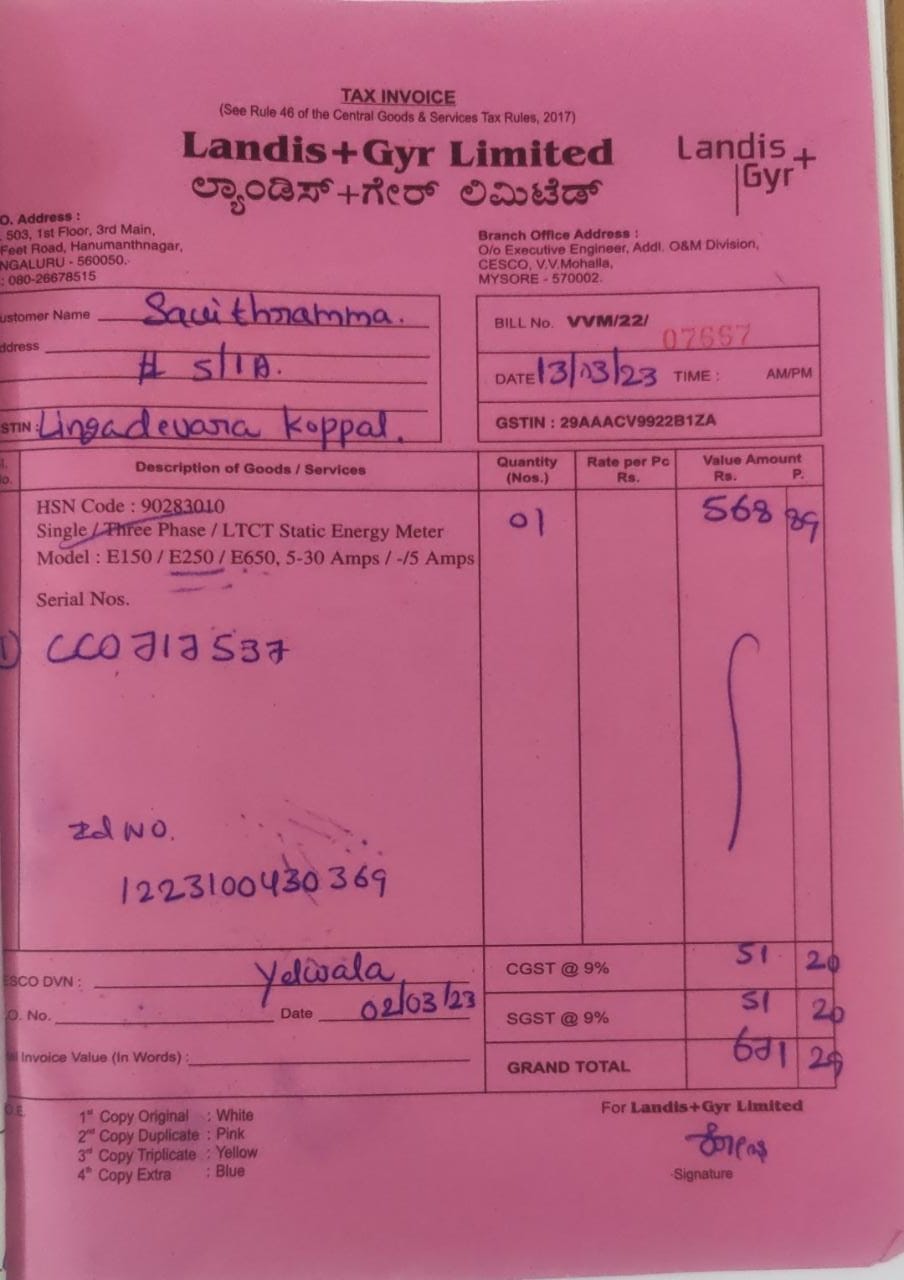 TAX INVOICE
(See Rule 46 of the Central Goods & Services Tax Rules, 2017)
Landis+Gyr Limited
ಲ್ಯಾಂಡಿಸ್+ಗೇರ್ ಲಿಮಿಟೆಡ್
Landis+
Gyr
O. Address :
503, 1st Floor, 3rd Main,
Feet Road, Hanumanthnagar,
NGALURU - 560050.
: 080-26678515
Branch Office Address :
O/o Executive Engineer, Addl. O&M Division,
CESCO, V.V.Mohalla,
MYSORE - 570002.
ustomer Name Savithramma.
ddress
# 5/1A.
STIN : Lingadevara Koppal.
BILL No. VVM/22/ 07667
DATE 13/03/23 TIME : AM/PM
GSTIN : 29AAACV9922B1ZA
Description of Goods / Services Quantity (Nos.) Rate per Pc Rs. Value Amount Rs. P.
HSN Code : 90283010
Single / Three Phase / LTCT Static Energy Meter 01 568 89
Model : E150 / E250 / E650, 5-30 Amps / -/5 Amps
Serial Nos.
1) CC0717537
Id NO.
1223100430369
ESCO DVN : Yelwala
CGST @ 9% 51 20
O. No. Date 02/03/23
SGST @ 9% 51 20
Invoice Value (In Words) :
GRAND TOTAL 671 29
O.E.
1st Copy Original : White
2nd Copy Duplicate : Pink
3rd Copy Triplicate : Yellow
4th Copy Extra : Blue
For Landis+Gyr Limited
Signature